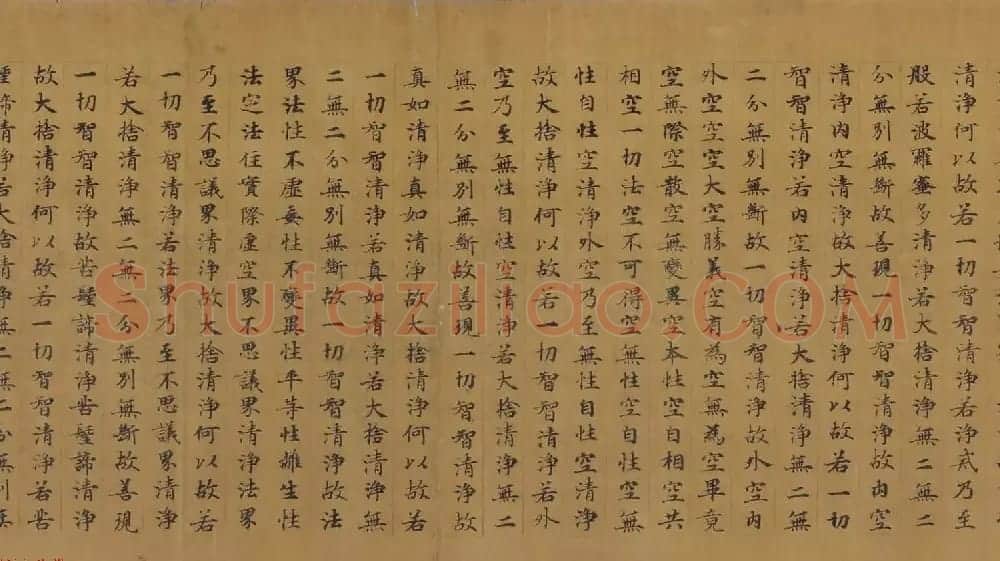 清淨何以故若一切智智清淨若淨戒乃至
般若波羅蜜多清淨若大捨清淨無二無二
分無別無斷故善現一切智智清淨故內空
清淨內空清淨故大捨清淨何以故若一切
智智清淨若內空清淨若大捨清淨無二無
二分無別無斷故一切智智清淨故外空內
外空空空大空勝義空有為空無為空畢竟
空無際空散空無變異空本性空自相空共
相空一切法空不可得空無性空自性空無
性自性空清淨外空乃至無性自性空清淨
故大捨清淨何以故若一切智智清淨若外
空乃至無性自性空清淨若大捨清淨無二
無二分無別無斷故善現一切智智清淨故
真如清淨真如清淨故大捨清淨何以故若
一切智智清淨若真如清淨若大捨清淨無
二無二分無別無斷故一切智智清淨故法
界法性不虛妄性不變異性平等性離生性
法定法住實際虛空界不思議界清淨法界
乃至不思議界清淨故大捨清淨何以故若
一切智智清淨若法界乃至不思議界清淨
若大捨清淨無二無二分無別無斷故善現
一切智智清淨故苦聖諦清淨苦聖諦清淨
故大捨清淨何以故若一切智智清淨若苦
聖諦清淨若大捨清淨無二無二分無別無
Shufaziliao.COM